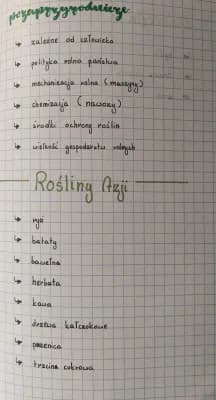 pozaprzyrodnicze
zależne od człowieka
polityka rolna państwa
mechanizacja rolna (maszyny)
chemizacja (nawozy)
środki ochrony roślin
wielkość gospodarstw rolnych
Rośliny Azji
ryż
bataty
bawełna
herbata
kawa
drzewa kauczukowe
pszenica
trzcina cukrowa